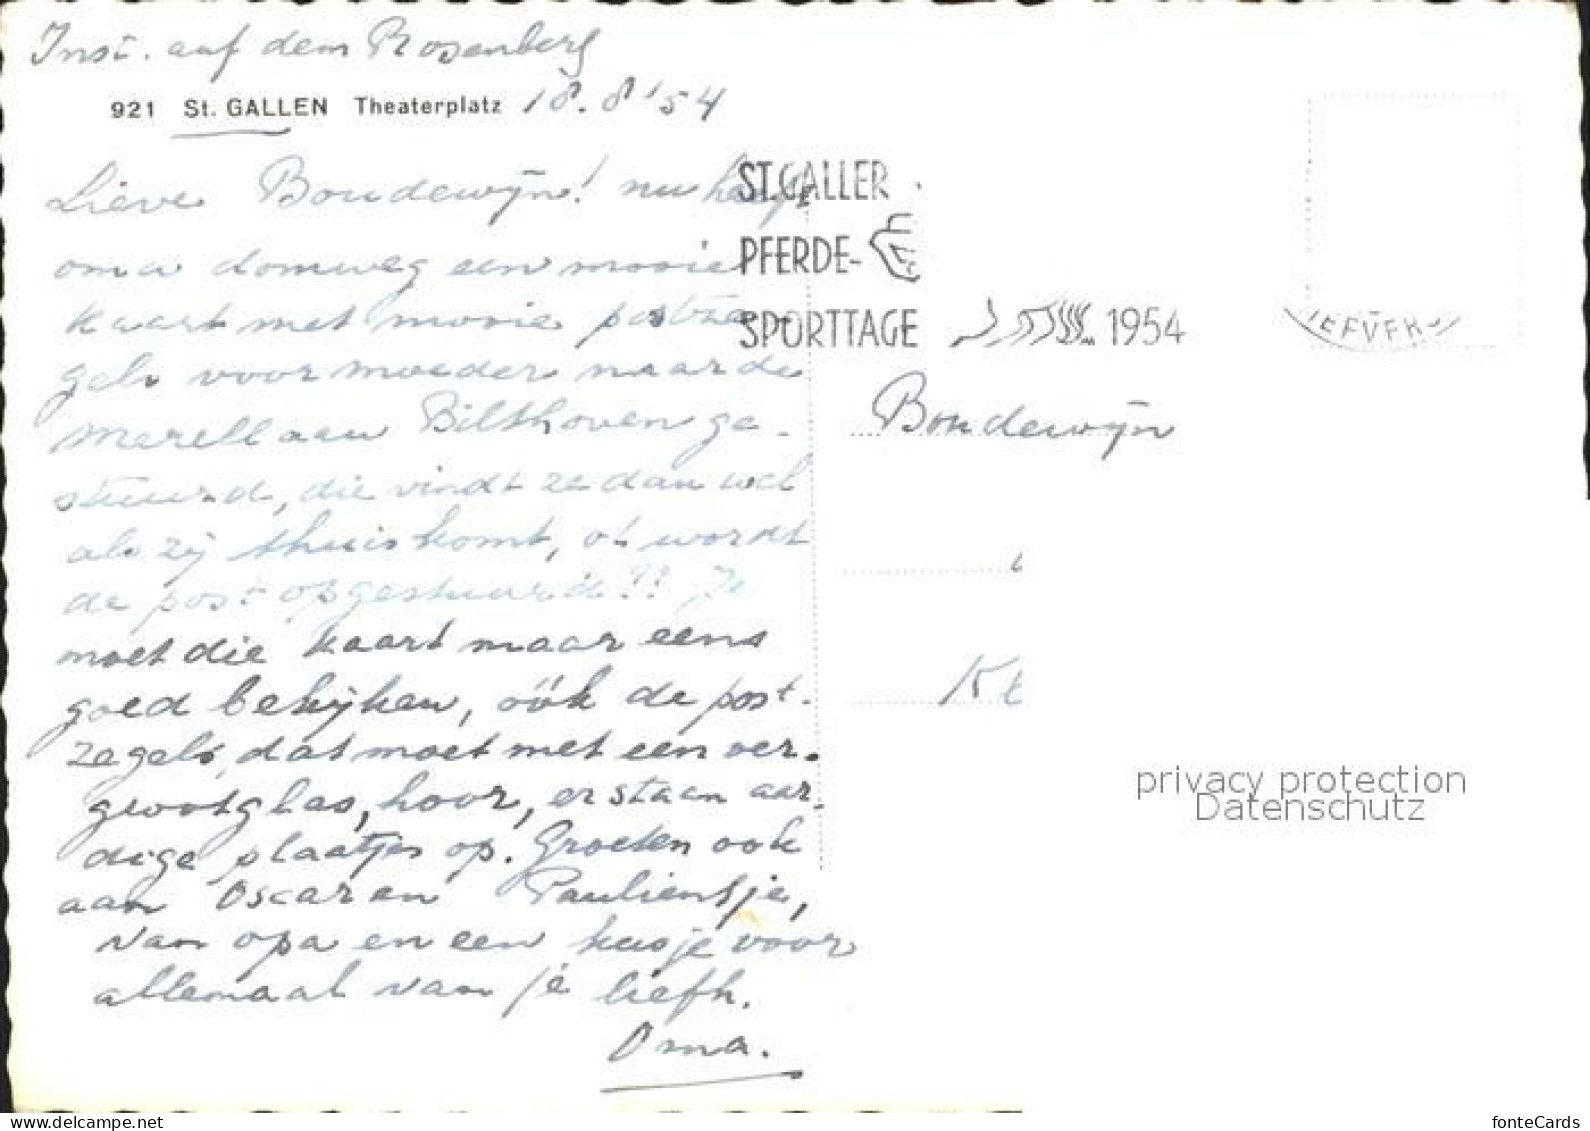 Inst. auf dem Rosenberg
921 St. GALLEN Theaterplatz 18.8'54
Lieve Boudewijn! nu heeft
oma domweg een mooie
kaart met mooie postze-
gels voor moeder naar de
Merellaan Bilthoven ge-
stuurd, die vindt ze dan wel
als zij thuis komt, of wordt
de post opgestuurd?? Je
moet die kaart maar eens
goed bekijken, óók de post-
zegels, dat moet met een ver-
grootglas, hoor, er staan aar-
dige plaatjes op. Groeten ook
aan Oscar en Paulientje,
van opa en een kusje voor
allemaal van je liefh.
Oma.
ST. GALLER
PFERDE-
SPORTTAGE 1954
Boudewijn
privacy protection
Datenschutz
delcampe.net
fonteCards